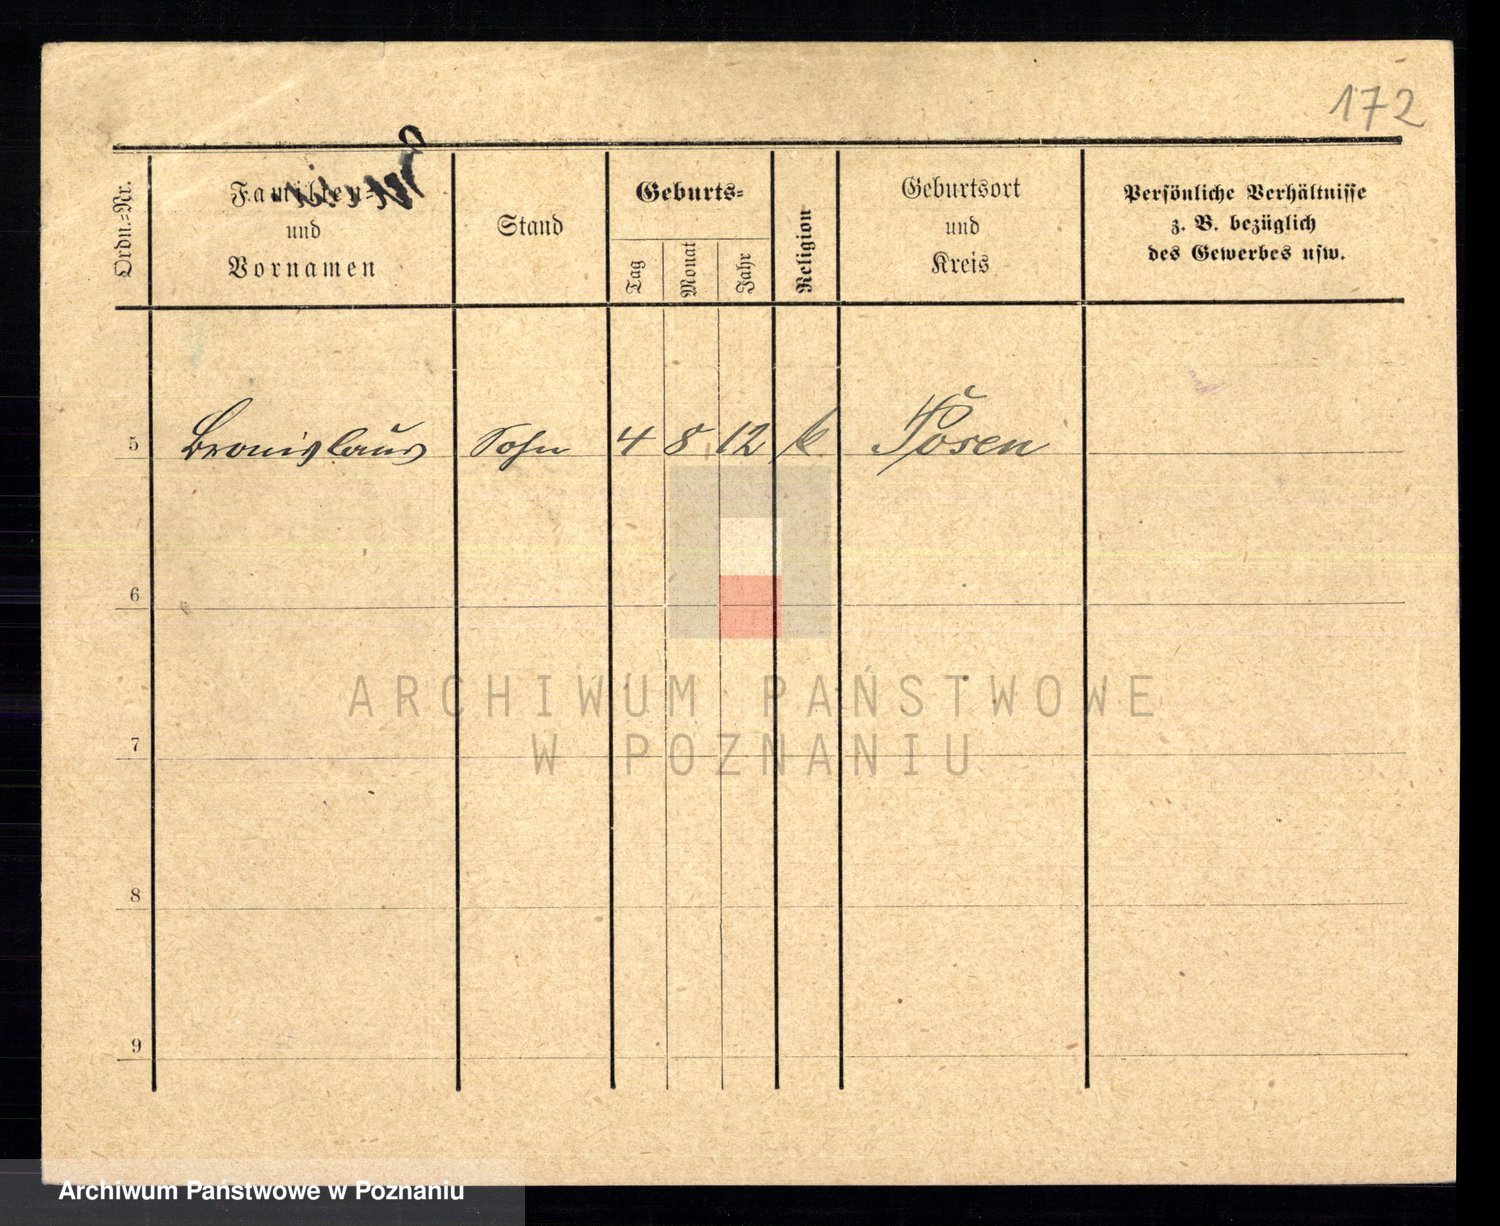 172
Ordn.-Nr.
Familien-
und
Vornamen
Stand
Geburts-
Tag
Monat
Jahr
Religion
Geburtsort
und
Kreis
Persönliche Verhältnisse
z. B. bezüglich
des Gewerbes usw.
5 Bronislaus Sohn 4 8 12 k. Posen
6
7
8
9
ARCHIWUM PAŃSTWOWE
W POZNANIU
Archiwum Państwowe w Poznaniu